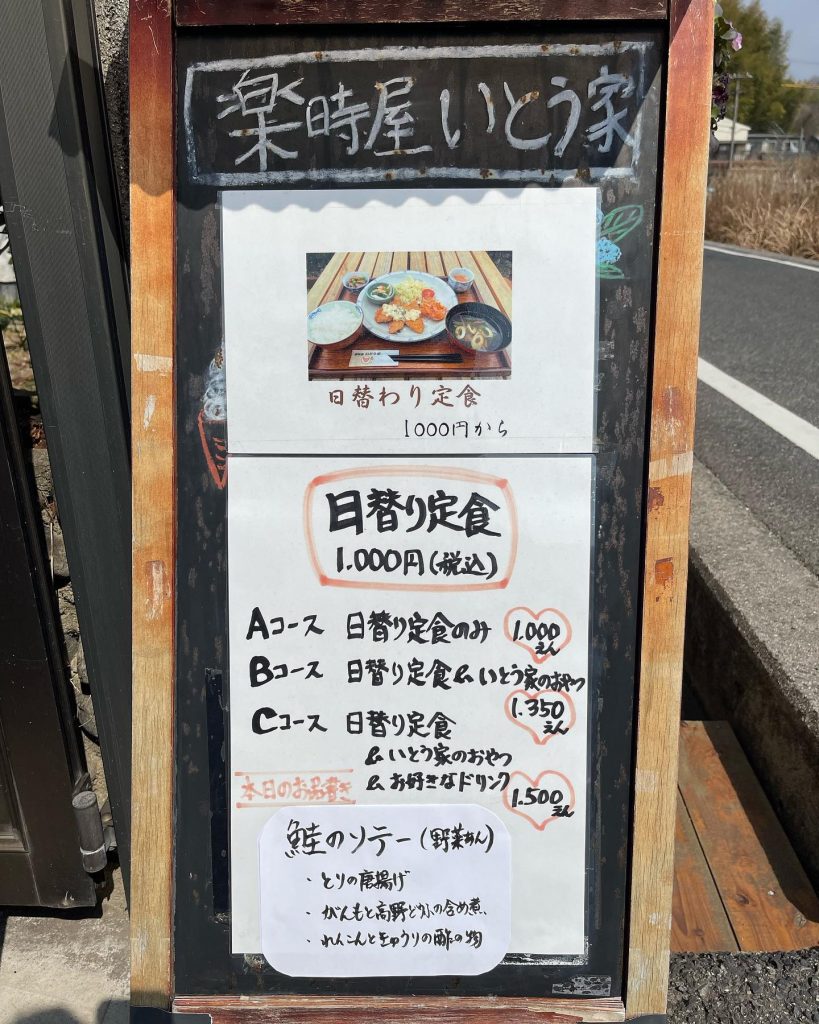 楽時屋 いとう家
日替わり定食
1000円から
日替り定食
1.000円(税込)
Aコース 日替り定食のみ 1.000えん
Bコース 日替り定食&いとう家のおやつ
1.350えん
Cコース 日替り定食
&いとう家のおやつ
&お好きなドリンク
1.500えん
本日のお品書き
鮭のソテー(野菜あん)
・とりの唐揚げ
・がんもと高野どうふの含め煮、
・れんこんときゅうりの酢の物